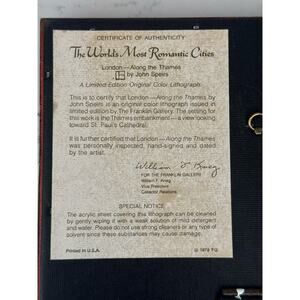 CERTIFICATE OF AUTHENTICITY
The World's Most Romantic Cities
London—Along the Thames
by John Speirs
A Limited Edition Original Color Lithograph
This is to certify that London—Along the Thames by
John Speirs is an original color lithograph issued in
limited edition by The Franklin Gallery. The setting for
this work is the Thames embankment—a view looking
toward St. Paul's Cathedral.
It is further certified that London—Along the Thames
was personally inspected, hand-signed and dated
by the artist.
William F. Krieg
FOR THE FRANKLIN GALLERY
William F. Krieg
Vice President
Collector Relations
SPECIAL NOTICE
The acrylic sheet covering this lithograph can be cleaned
by gently wiping it with a weak solution of mild detergent
and water. Please do not use strong cleaners or any type of
solvent since these substances may cause damage.
Printed in U.S.A.
© 1979 FG